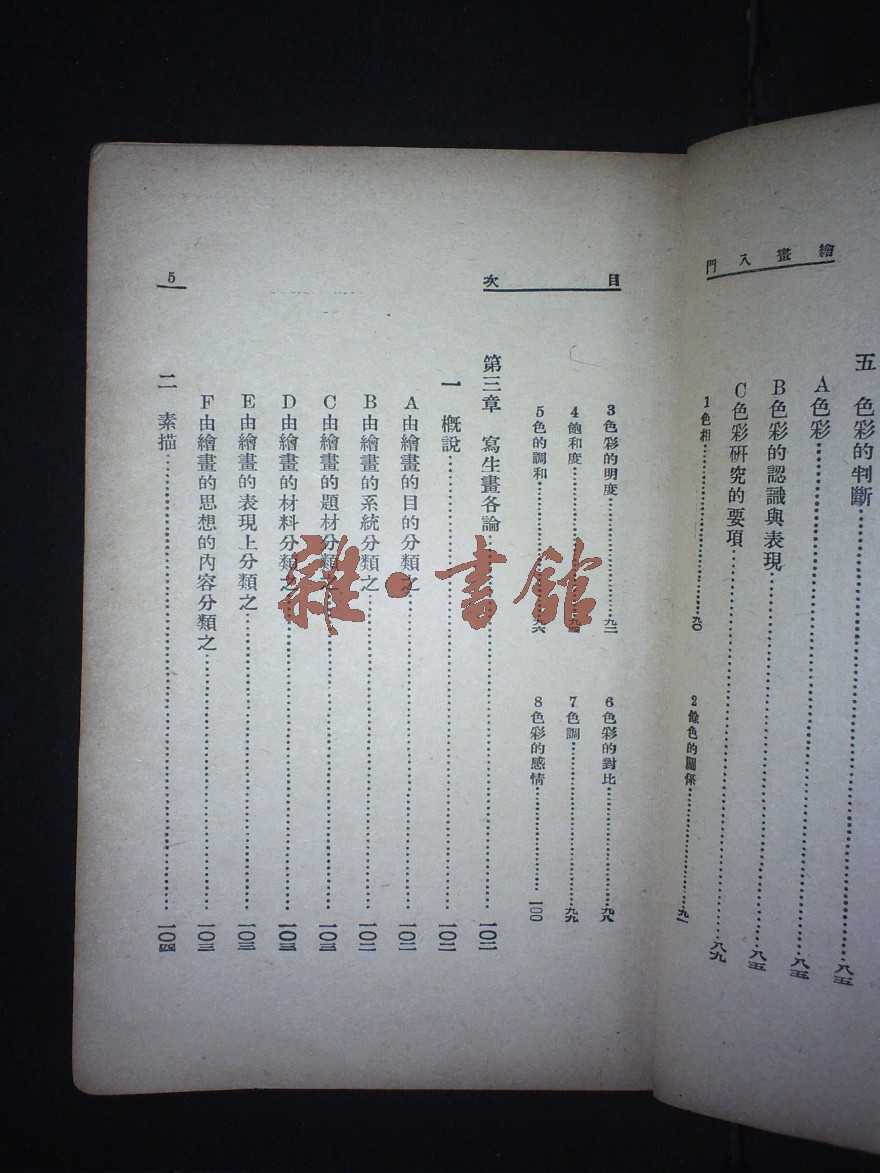 繪畫入門
五 色彩的判斷……八五
A 色彩……八五
B 色彩的認識與表現……八五
C 色彩研究的要項……八九
1 色相……九〇
2 餘色的關係……九一
目次
3 色彩的明度……九二
6 色彩的對比……九八
4 飽和度……九四
7 色調……九九
5 色的調和……九六
8 色彩的感情……一〇〇
第三章 寫生畫各論……一〇二
一 概說……一〇二
A 由繪畫的目的分類之……一〇二
B 由繪畫的系統分類之……一〇二
C 由繪畫的題材分類之……一〇三
D 由繪畫的材料分類之……一〇三
E 由繪畫的表現上分類之……一〇三
F 由繪畫的思想的內容分類之……一〇三
二 素描……一〇四
5
雜·書館